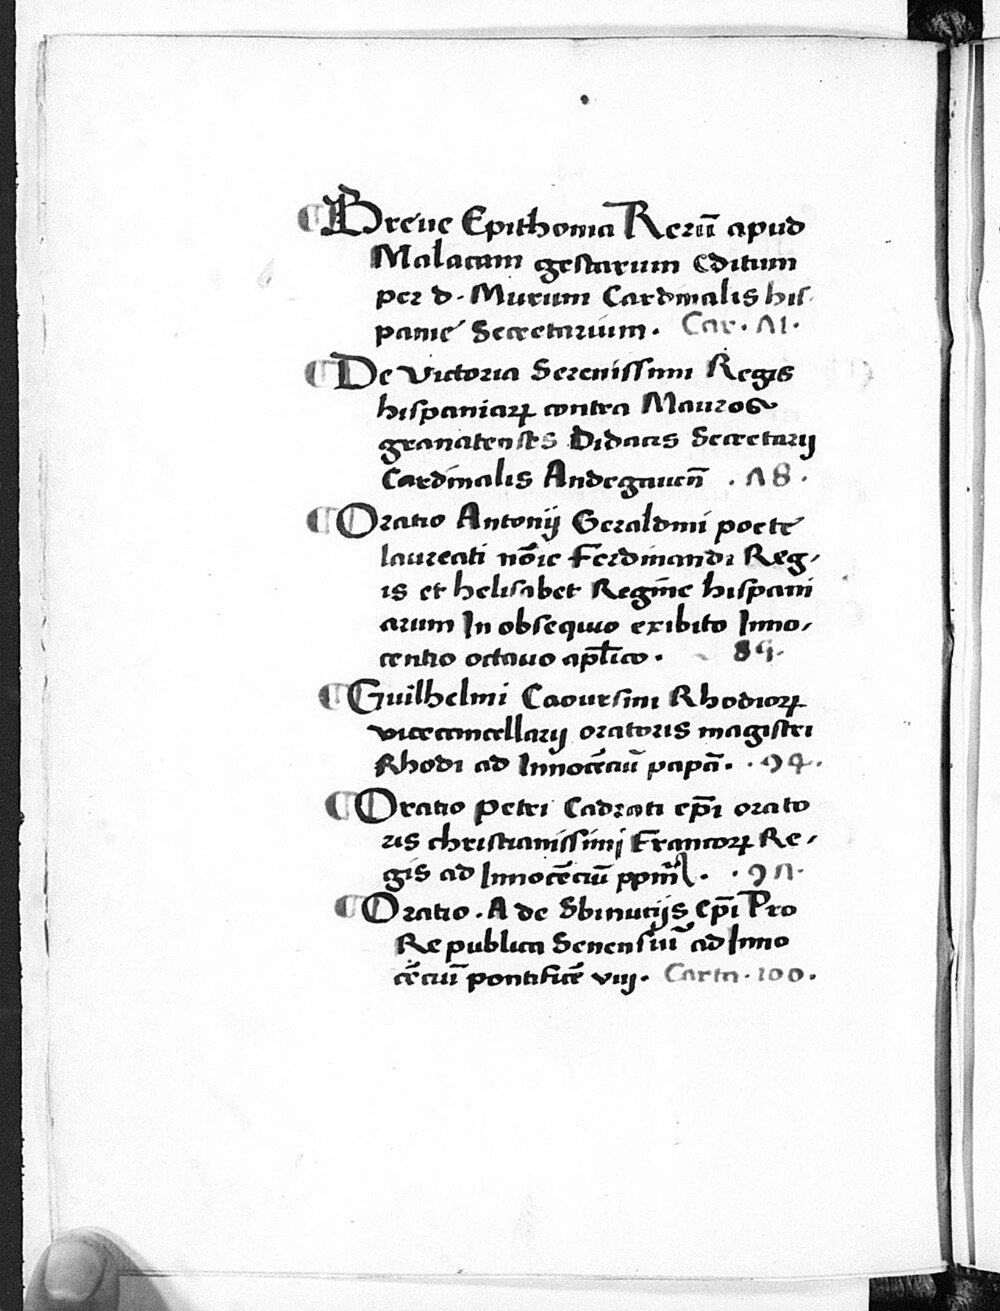 ¶ Breue Epithoma Rerū apud
Malacam gestarum Editum
per d. Murum Cardinalis his
panie Secretarium. Car. Λ1.
¶ De victoria Serenissimi Regis
hispaniaꝝ contra Mauros
granatenses Didacus Secretarij
Cardinalis Andegauen̄ . Λ8 .
¶ Oratio Antonij Geraldini poete
laureati nōie Ferdinandi Reg,
is et helisabet Regine hispani
arum In obsequio exibito Inno,
centio octauo apl̄ico . 84 .
¶ Guilhelmi Caoursini Rhodioꝝ
vicecancellarij oratoris magistri
Rhodi ad Innocēciū papā . . 94 .
¶ Oratio petri Cadrati ep̄i orato
ris christianissimj Francoꝝ Re,
gis ad Innocēciū ppm . . 9Λ .
¶ Oratio . A de Sbinucijs ep̄i Pro
Republica Senensiū ad Inno
cēciū pontificē viij . Carta . 100 .